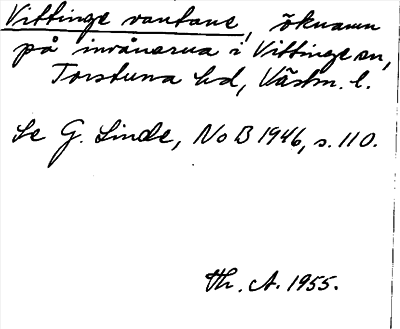 Vittinge vantane, öknamn
på invånarna i Vittinge sn,
Torstuna hd, Västm. l.
Se G. Linde, NoB 1946, s. 110.
Th. A. 1955.